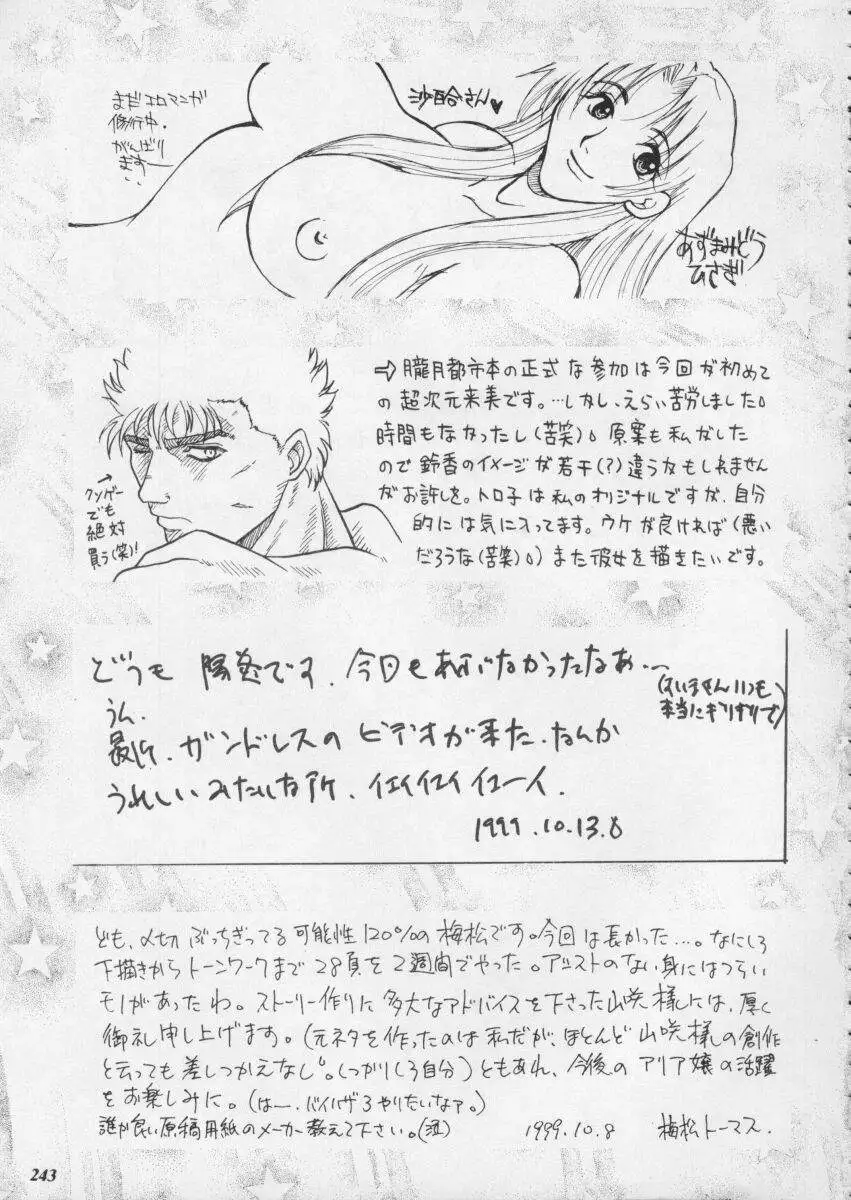 まだエロマンガ
修行中.
がんばり
ます—
沙百合さん♥
あずまみどう
ひさぎ
⇨朧月都市本の正式な参加は今回が初めて
の超次元来美です。…しかし、えらい苦労しました。
時間もなかったし(苦笑)。原案も私がした
ので鈴香のイメージが若干(?)違うかもしれません
がお許しを。トロ子は私のオリジナルですが、自分
的には気に入ってます。ウケが良ければ(悪い
だろうな(苦笑)。)また彼女を描きたいです。
クソゲー
でも
絶対
買う(笑)!
どうも 陽炎です、今回もあぶなかったなあ…
(すいませんいつも
本当にギリギリで)
うん、
最近、ガンドレスのビデオが来た、なんか
うれしいみたいな所、イエイイエイイエーイ.
1999.10.13.8
ども、〆切ぶっちぎってる可能性120%の梅松です。今回は長かった…。なにしろ
下描きからトーンワークまで28頁を2週間でやった。アシストのない身にはつらい
モノがあったわ。ストーリー作りに多大なアドバイスを下さった山咲様には、厚く
御礼申し上げます。(元ネタを作ったのは私だが、ほとんど山咲様の創作
と云っても差しつかえなし。しっかりしろ自分)ともあれ、今後のアリア嬢の活躍
をお楽しみに。(はー、バイハザ3やりたいなァ。)
誰か良い原稿用紙のメーカー教えて下さい。(泣) 1999.10.8 梅松トーマス.
243